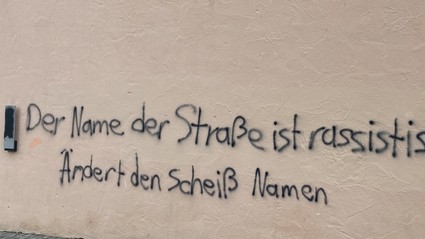 Der Name der Straße ist rassistis
Ändert den Scheiß Namen